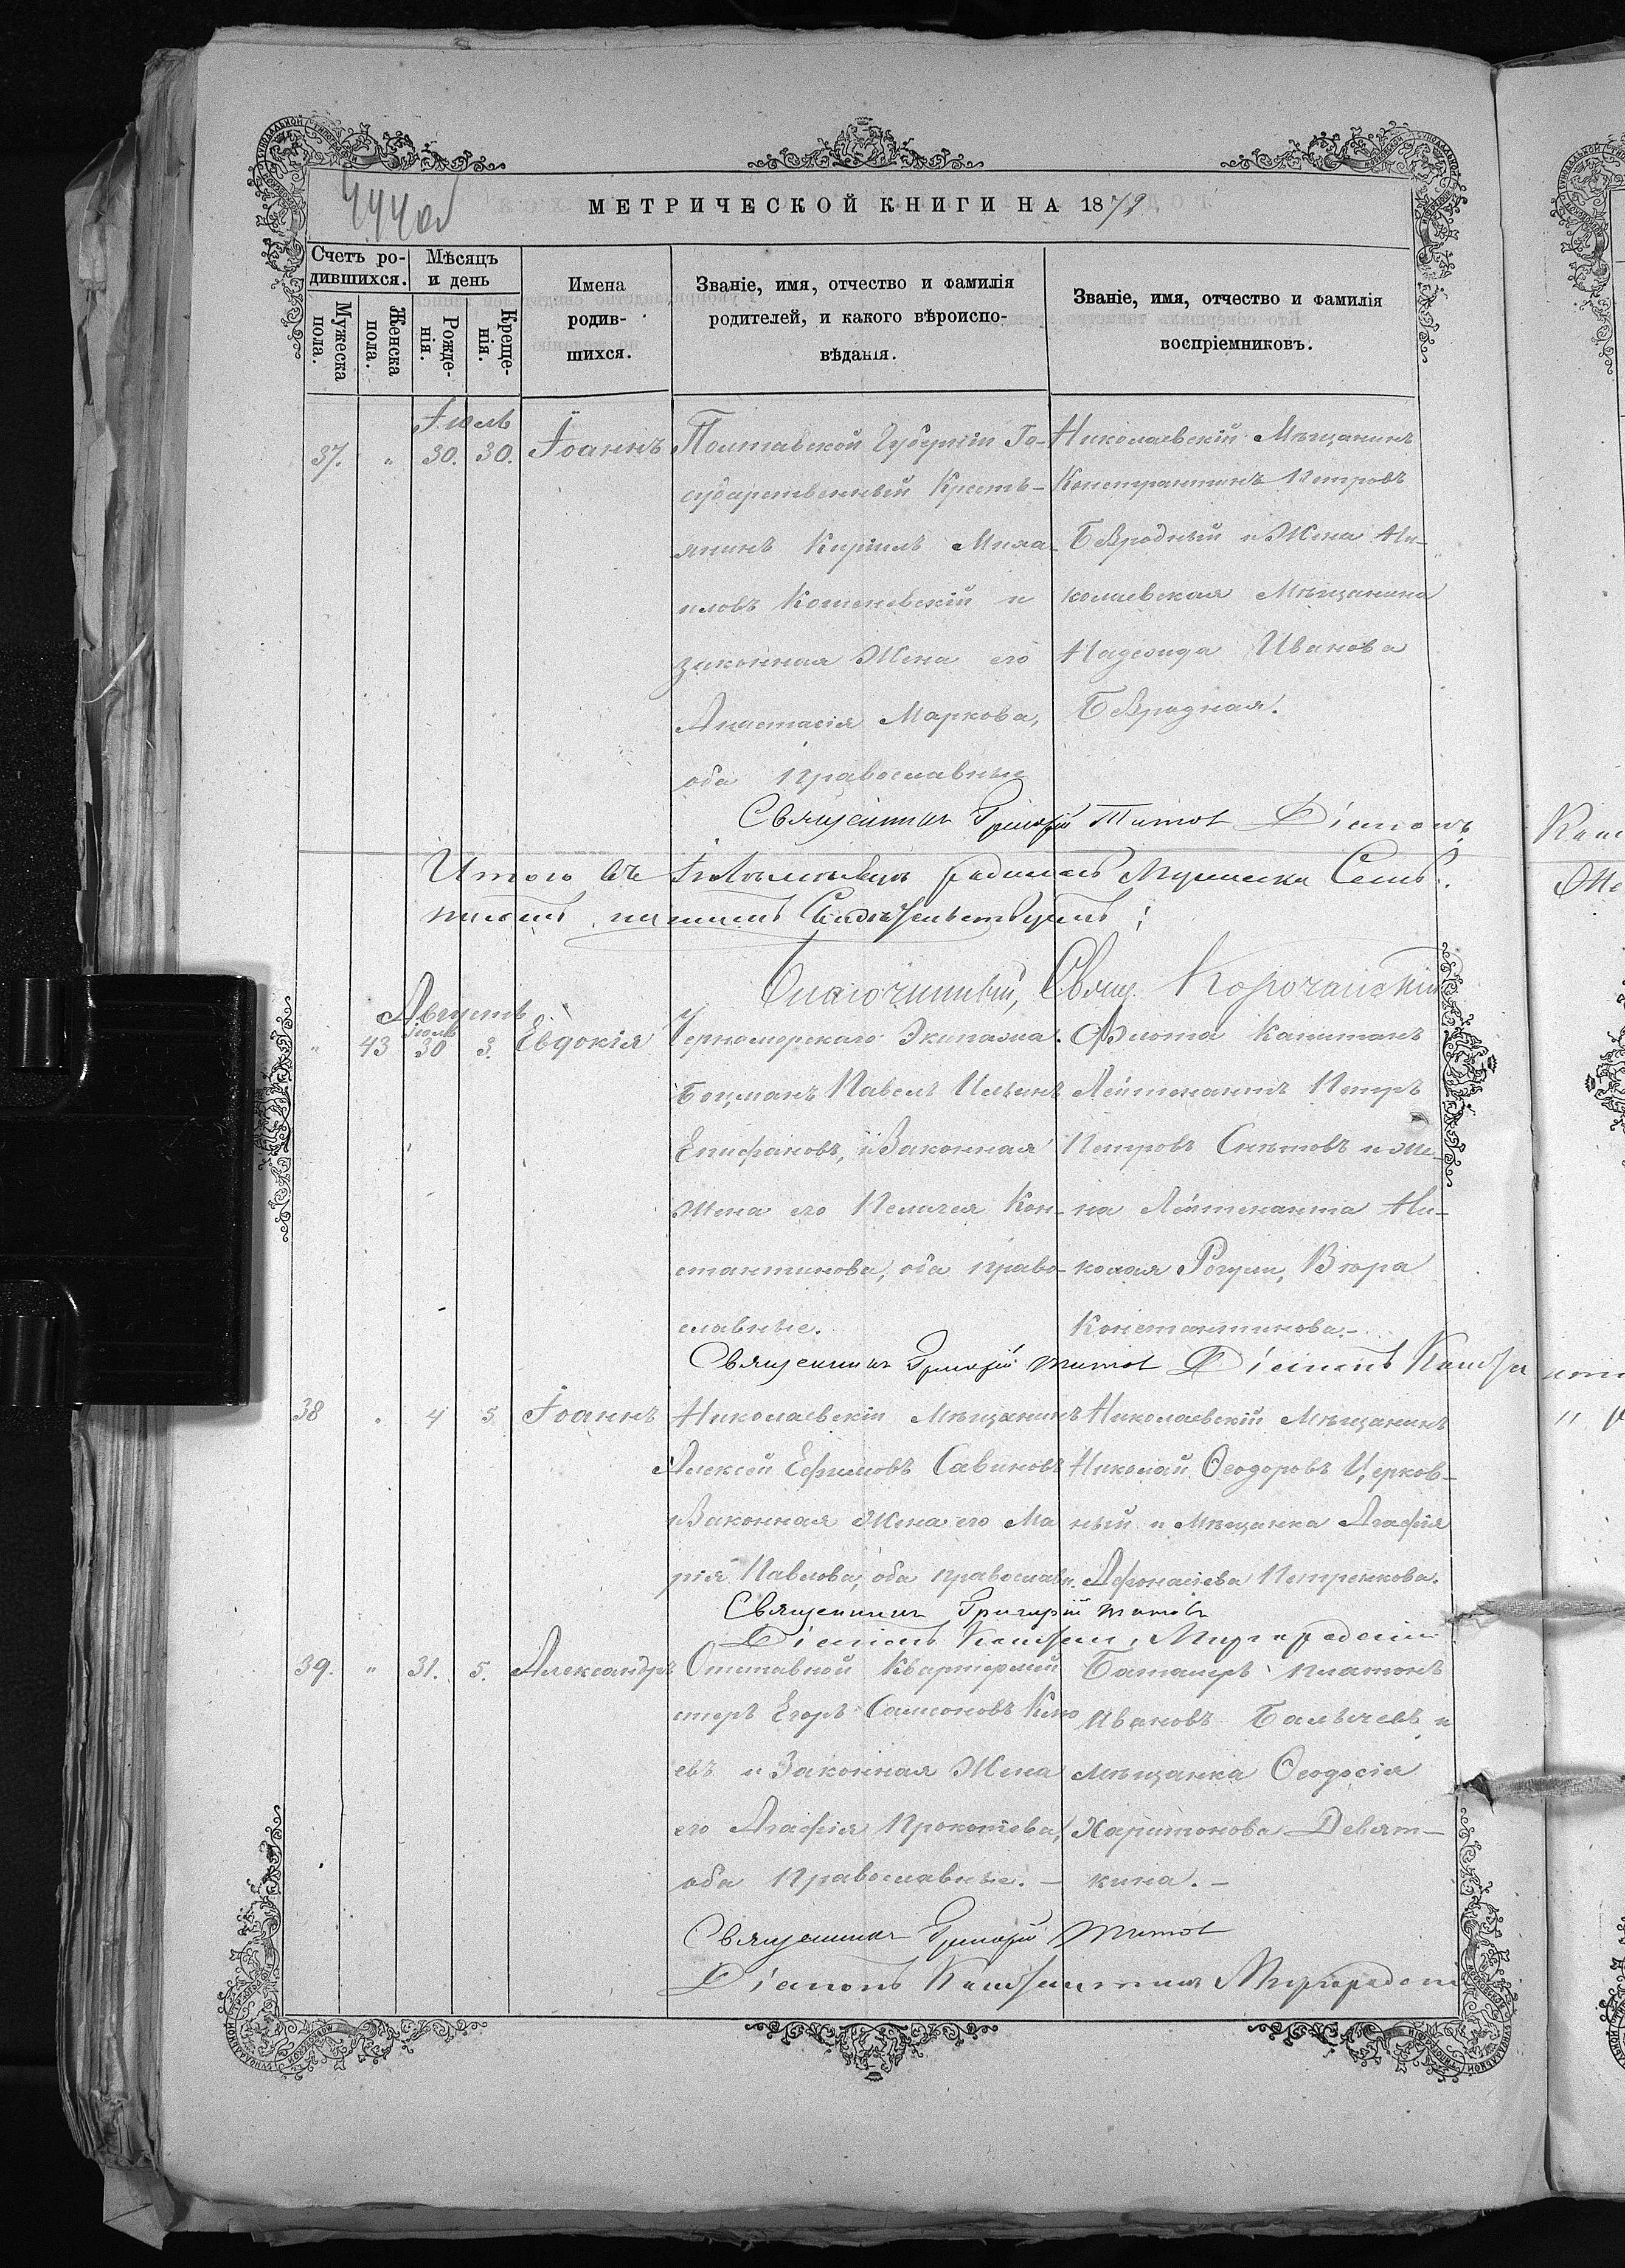 444об
МЕТРИЧЕСКОЙ КНИГИ НА 1879
Счетъ ро-
дившихся.
Мѣсяцъ
и день
Мужеска
пола.
Женска
пола.
Рожде-
нія.
Креще-
нія.
Имена
родив-
шихся.
Званіе, имя, отчество и фамилія
родителей, и какого вѣроиспо-
вѣданія.
Званіе, имя, отчество и фамилія
воспріемниковъ.
Іюль
37. " 30. 30. Іоаннъ
Полтавской Губерніи Го-
сударственный Кресть-
янинъ Кирилъ Миха-
иловъ и
законная Жена его
Анастасія Маркова,
оба православные
Николаевскій Мѣщанинъ
Константинъ Петровъ
и Жена Ни-
колаевская Мѣщанина
Надежда Иванова
Священникъ Григорій Титов Діаконъ
Итого въ родилось Мужеска Семь
Свидѣтельствуемъ:
Благочинный, Свящ. Корочанскій
Августъ
" 43 Іюль 30 3. Евдокія
Черноморскаго Экипажа
Боцманъ Павелъ Ильинъ
Епифановъ, и Законная
Жена его Пелагея Кон-
стантинова, оба право-
славные.
Флота Капитанъ
Лейтенантъ Петръ
Петровъ и Же-
на Лейтенанта Ни-
колая Рогули, Вѣра
Константинова.-
Священникъ Григорій Титов Діаконъ
38 " 4 5 Іоаннъ
Николаевскій Мѣщанинъ
Алексѣй Ефимовъ Савиновъ
и Законная Жена его Ма
рія Павлова, оба православн.
Николаевскій Мѣщанинъ
Николай Ѳеодоровъ Церков-
ный и Мѣщанка Агафія
Афонасіева Петренкова.
Священникъ Григорій Титовъ
Діаконъ
39. " 31. 5. Александръ
Отставной Квартермей
стеръ Егоръ Самсоновъ
евъ и Законная Жена
его Агафія Прокопіева,
оба Православные.-
Баталеръ Платонъ
Ивановъ и
мѣщанка Ѳеодосія
Харитонова Девят-
кина.-
Священникъ Григорій Титов
Діаконъ